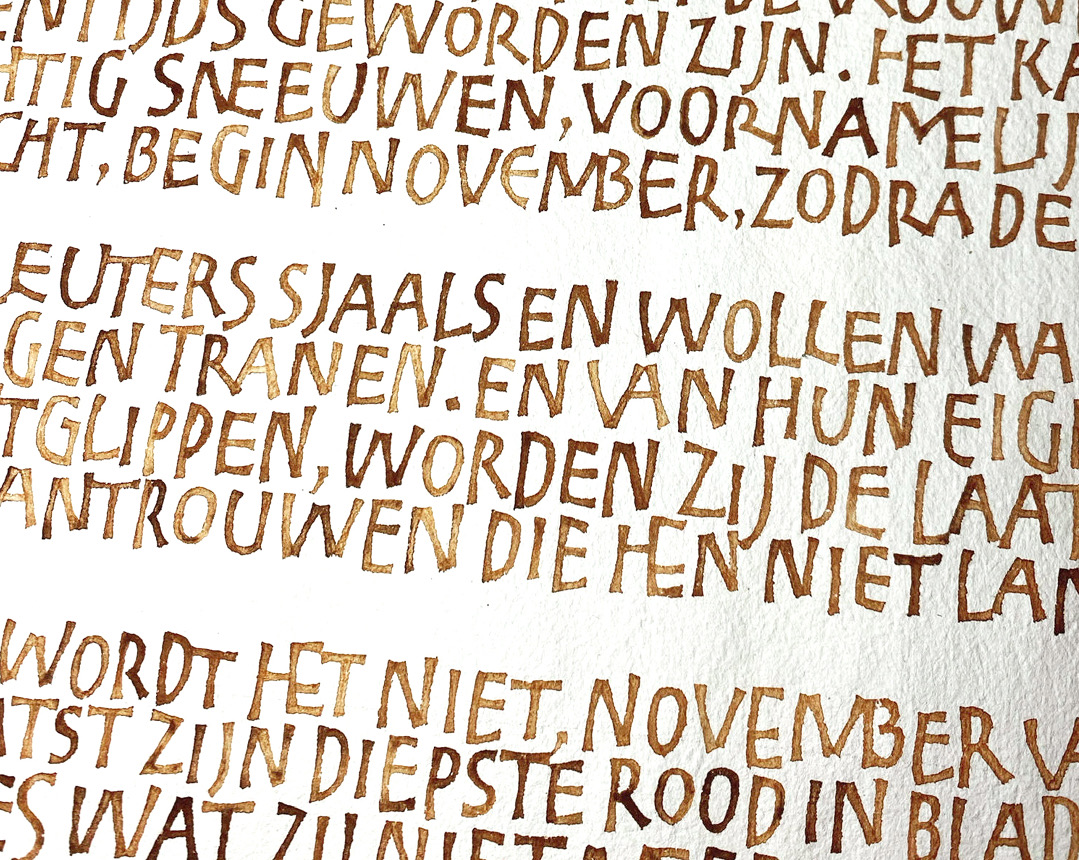 ENTIJDS GEWORDEN ZIJN. HET KA
HTIG SNEEUWEN, VOORNAMELIJ
CHT, BEGIN NOVEMBER, ZODRA DE
EUTERS SJAALS EN WOLLEN WA
GEN TRANEN. EN VAN HUN EIGE
TGLIPPEN, WORDEN ZIJ DE LAAT
ANTROUWEN DIE HEN NIET LAN
WORDT HET NIET, NOVEMBER VA
TST ZIJN DIEPSTE ROOD IN BLAD
ES WAT ZIJ NIET MEER